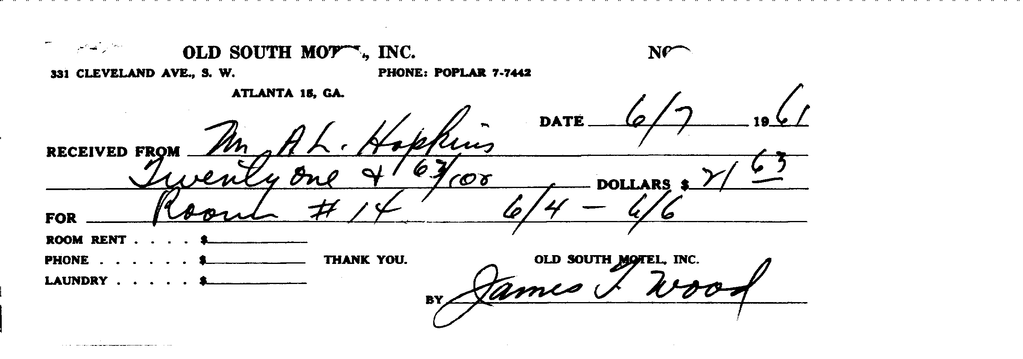 OLD SOUTH MOTEL, INC. No
331 CLEVELAND AVE., S. W. PHONE: POPLAR 7-7442
ATLANTA 15, GA.
DATE 6/7 1961
RECEIVED FROM Mr A L. Hopkins
Twenty one & 63/100 DOLLARS $ 21 63
FOR Room # 14 6/4 - 6/6
ROOM RENT . . . . $
PHONE . . . . . . $ THANK YOU. OLD SOUTH MOTEL, INC.
LAUNDRY . . . . . $
BY James T Wood